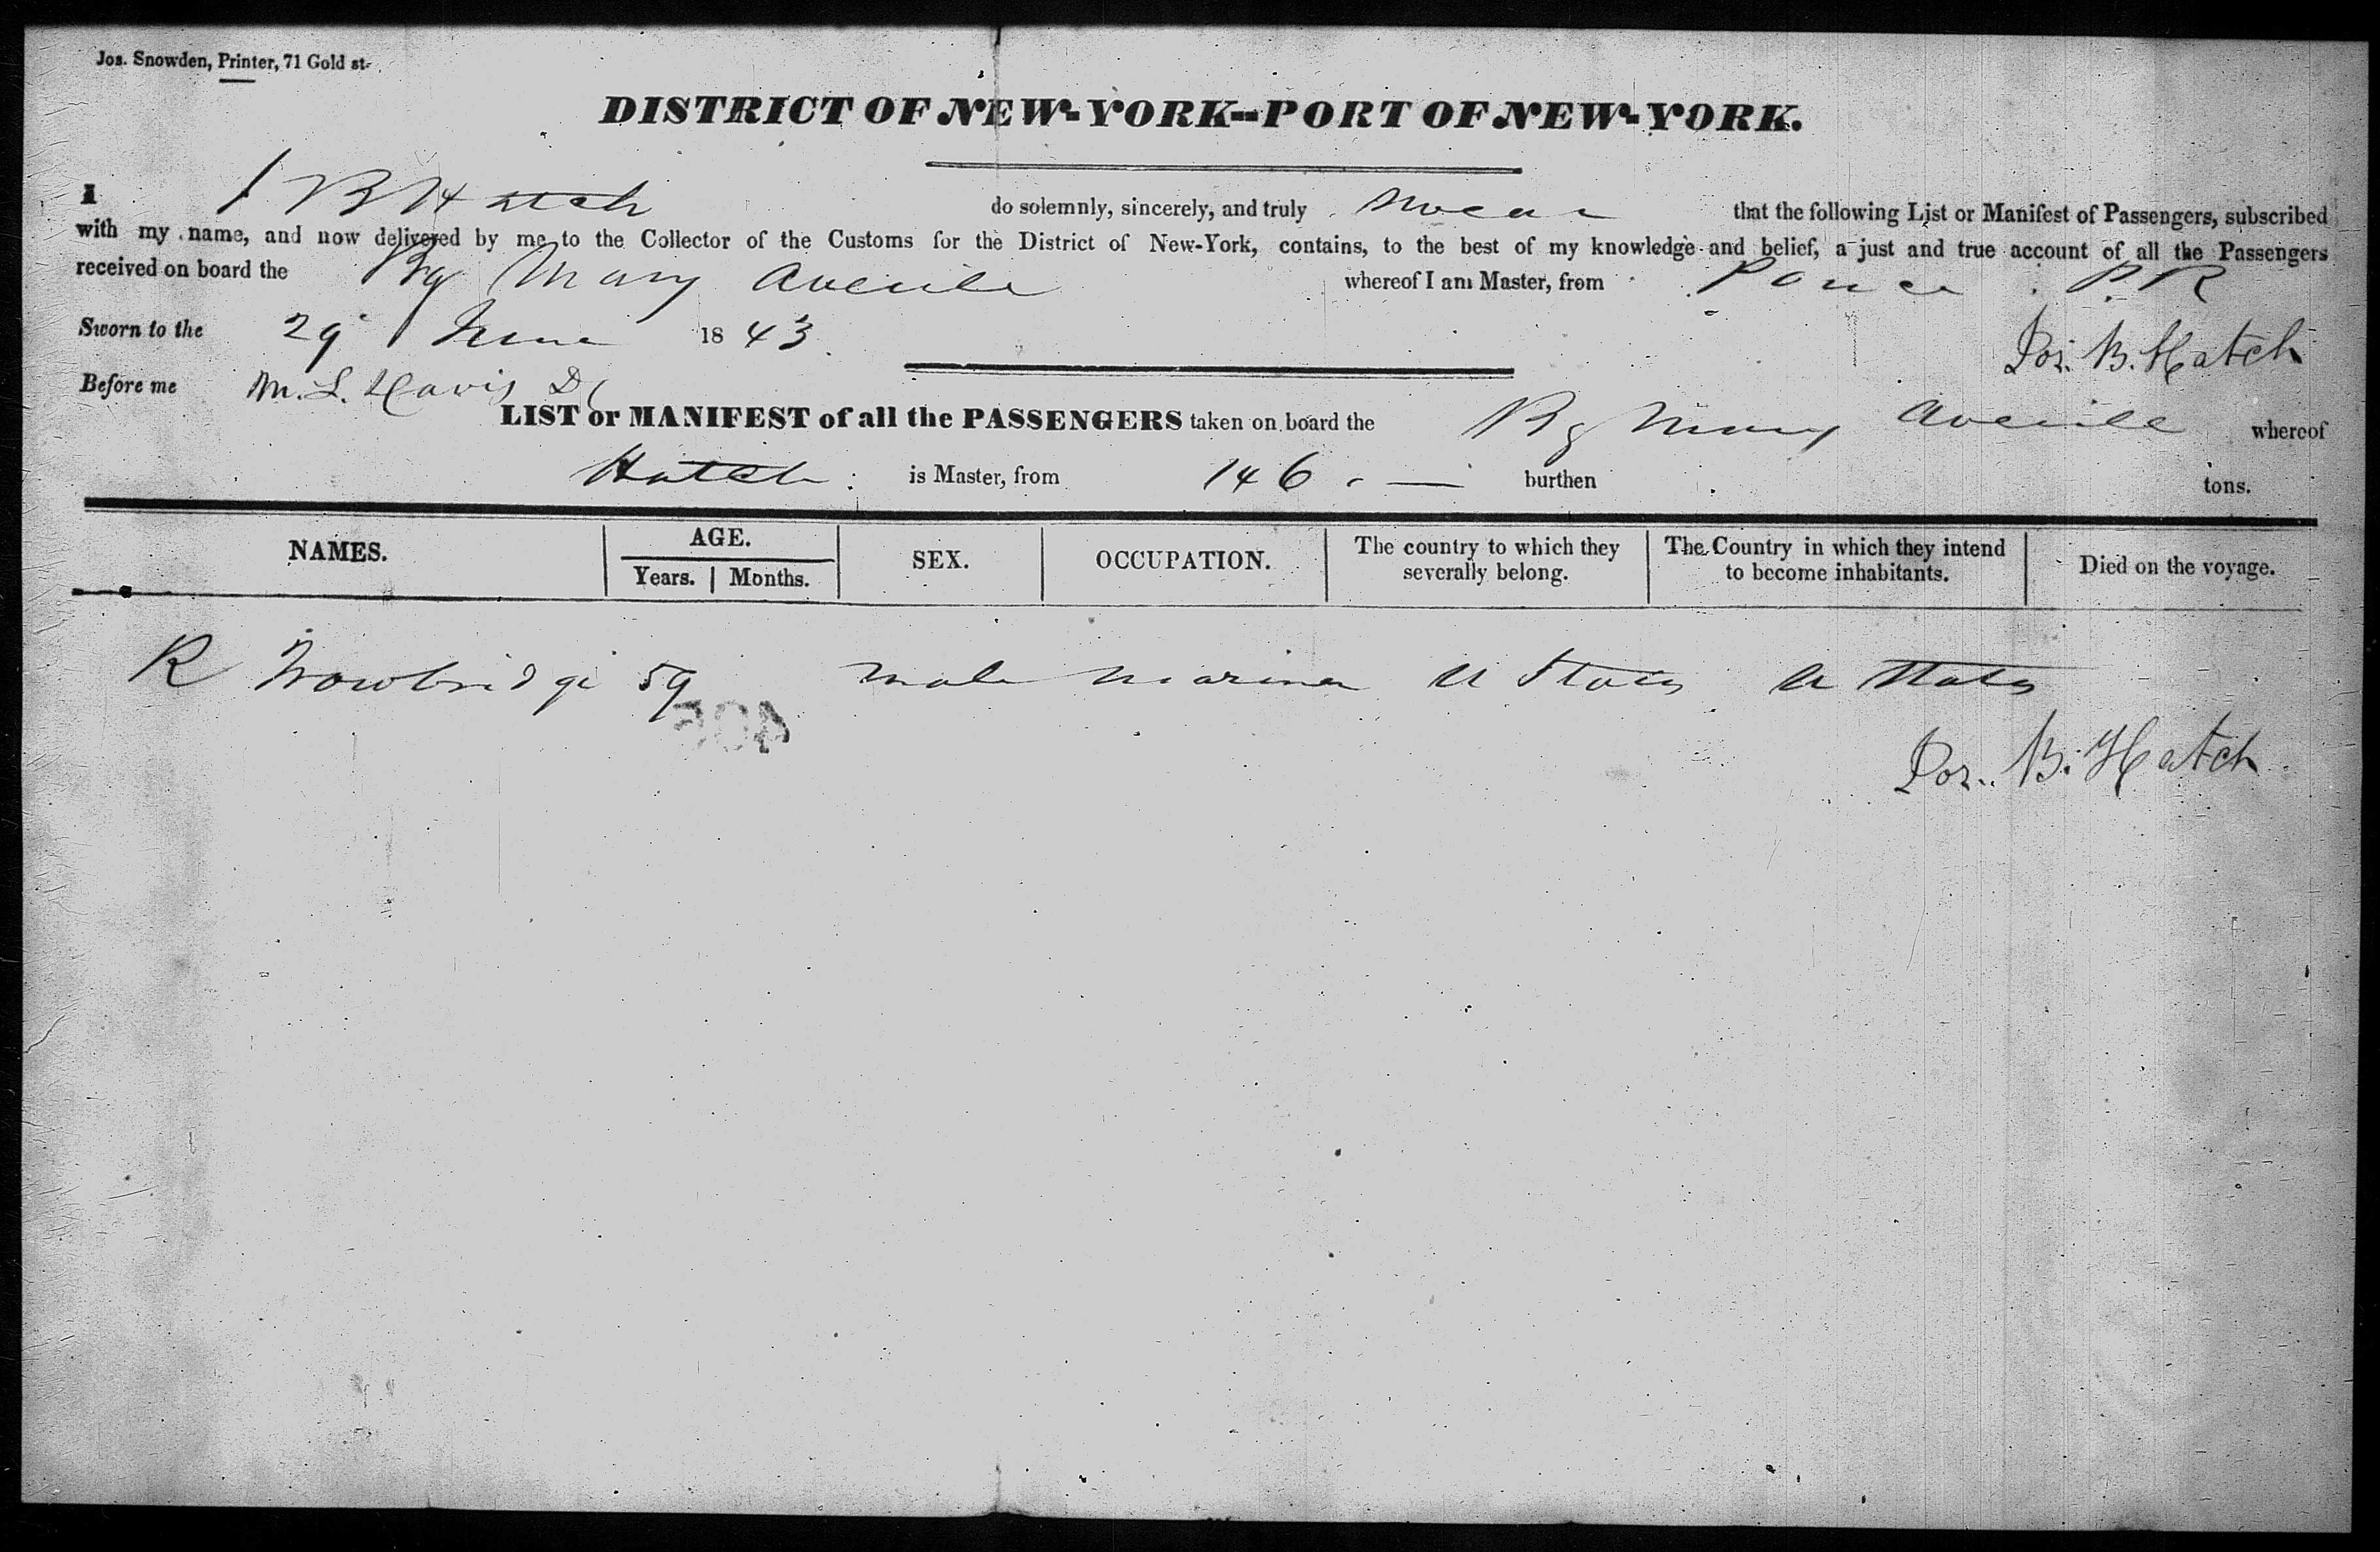 Jos. Snowden, Printer, 71 Gold st.
DISTRICT OF NEW-YORK--PORT OF NEW-YORK.
I J B Hatch do solemnly, sincerely, and truly swear that the following List or Manifest of Passengers, subscribed
with my name, and now delivered by me to the Collector of the Customs for the District of New-York, contains, to the best of my knowledge and belief, a just and true account of all the Passengers
received on board the Bg Mary Averile whereof I am Master, from Ponce P.R
Sworn to the 29 June 1843.
Jos. B. Hatch
Before me M. L. Davis DC
LIST or MANIFEST of all the PASSENGERS taken on board the Bg Mary Averile whereof
Hatch is Master, from 146 burthen tons.
NAMES. AGE. Years. Months. SEX. OCCUPATION. The country to which they severally belong. The Country in which they intend to become inhabitants. Died on the voyage.
R Trowbridge 59 male mariner U States U States
Jos. B. Hatch